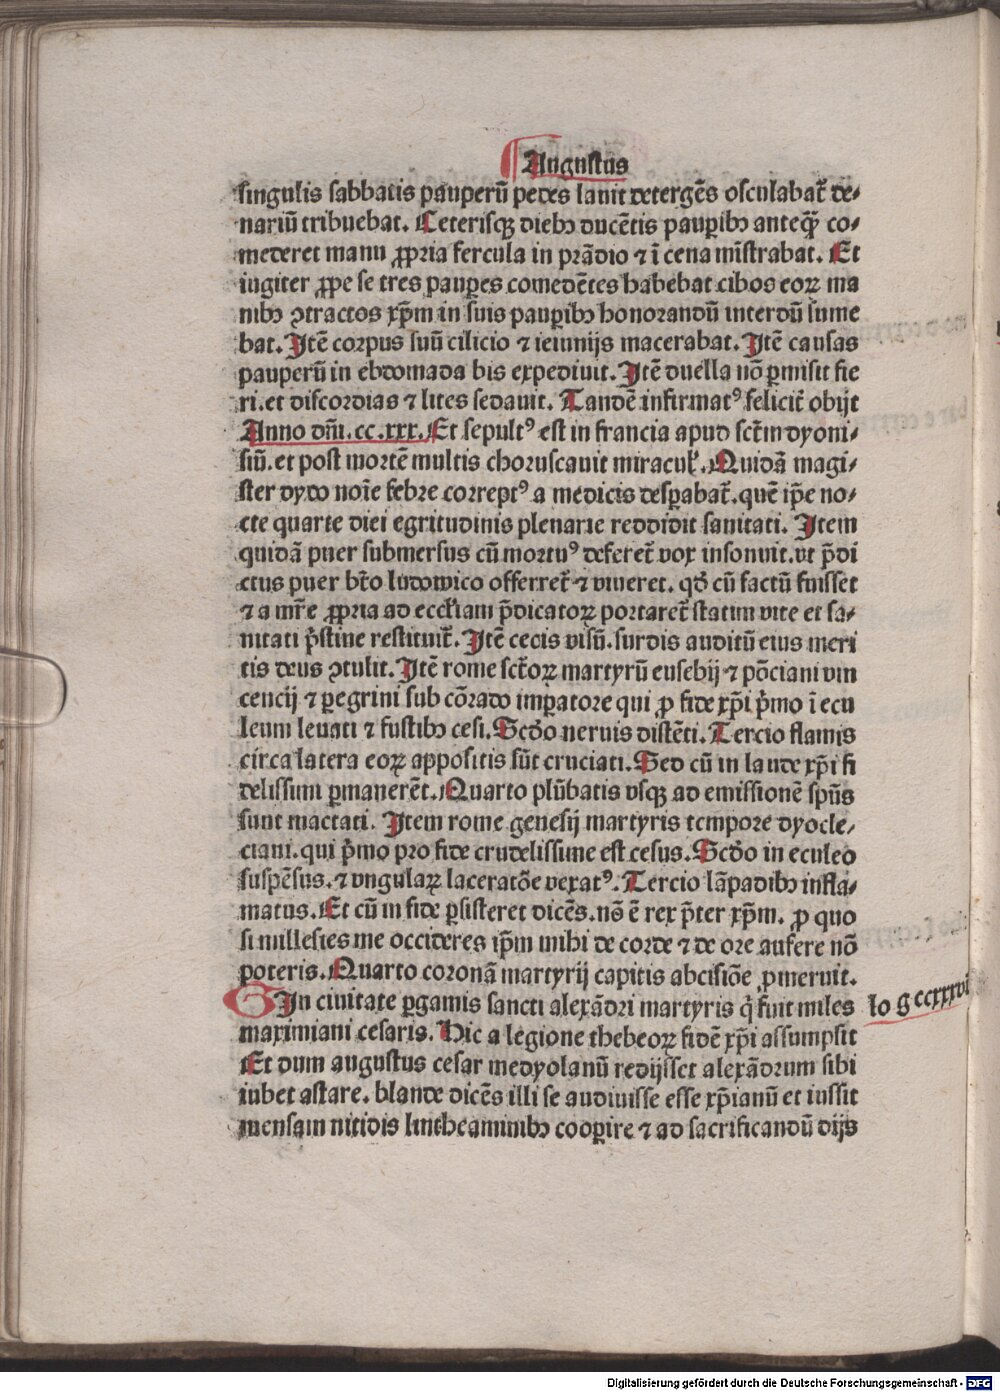 Augustus
singulis sabbatis pauperũ pedes lauit detergẽs osculabat᷑ de⸗
nariũ tribuebat. Ceterisqꝫ diebꝫ ducẽtis paupibꝫ anteqꝫ̃ co⸗
mederet manu ꝓpria fercula in prãdio ⁊ ĩ cena mĩstrabat. Et
iugiter ꝓpe se tres paupes comedẽtes habebat cibos eoꝝ ma
nibꝫ ꝯtractos xp̃m in suis paupibꝫ honorandũ interdũ sume
bat. Itẽ corpus suũ cilicio ⁊ ieiunijs macerabat. Itẽ causas
pauperũ in ebdomada bis expediuit. Itẽ duella nõ ꝑmisit fie
ri. et discordias ⁊ lites sedauit. Tandẽ infirmatꝰ felicit᷑ obijt
Anno dñi. cc .xxx. Et sepultꝰ est in francia apud sct̃m dyoni⸗
siũ. et post mortẽ multis choruscauit miracul᷑. Quidã magi⸗
ster dydo noĩe febre correptꝰ a medicis desꝑabat᷑. quẽ ip̃e no⸗
cte quarte diei egritudinis plenarie reddidit sanitati. Item
quidã puer submersus cũ mortuꝰ deferet᷑ vox insonuit. vt p̃di
ctus puer bt̃o ludowico offerret᷑ ⁊ viueret. qd̃ cũ factũ fuisset
⁊ a mr̃e ꝓpria ad eccl̃iam p̃dicatoꝝ portaret᷑ statim vite et sa⸗
nitati p̃stine restituit᷑. Itẽ cecis visũ. surdis auditũ eius meri
tis deus ꝯtulit. Itẽ rome sct̃oꝝ martyrũ eusebij ⁊ põciani vin
cencij ⁊ peregrini sub cõrado imꝑatore qui ꝓ fide xp̃i p̃mo ĩ ecu
leum leuati ⁊ fustibꝫ cesi. Scd̃o neruis distẽti. Tercio flamis
circa latera eoꝝ appositis sũt cruciati. Sed cũ in laude xp̃i fi
delissimi ꝑmanerẽt. Quarto plũbatis vsqꝫ ad emissionẽ spũs
sunt mactati. Item rome genesij martyris tempore dyocle⸗
ciani. qui p̃mo pro fide crudelissime est cesus. Scd̃o in eculeo
suspẽsus. ⁊ vngulaꝝ laceratõe vexatꝰ. Tercio lãpadibꝫ infla⸗
matus. Et cũ in fide ꝑsisteret dicẽs. nõ ẽ rex p̃ter xp̃m. ꝓ quo
si millesies me occideres ip̃m mihi de corde ⁊ de ore aufere nõ
poteris. Quarto coronã martyrij capitis abcisiõe ꝓmeruit.
In ciuitate ꝑgamis sancti alexãdri martyris q̃ fuit miles
lo g ccxxxvi
maximiani cesaris. Hic a legione thebeoꝝ fidẽ xp̃i assumpsit
Et dum augustus cesar medyolanũ redijsset alexãdrum sibi
iubet astare. blande dicẽs illi se audiuisse esse xp̃ianũ et iussit
mensam nitidis lintheaminibꝫ cooꝑire ⁊ ad sacrificandũ dijs
Digitalisierung gefördert durch die Deutsche Forschungsgemeinschaft - DFG